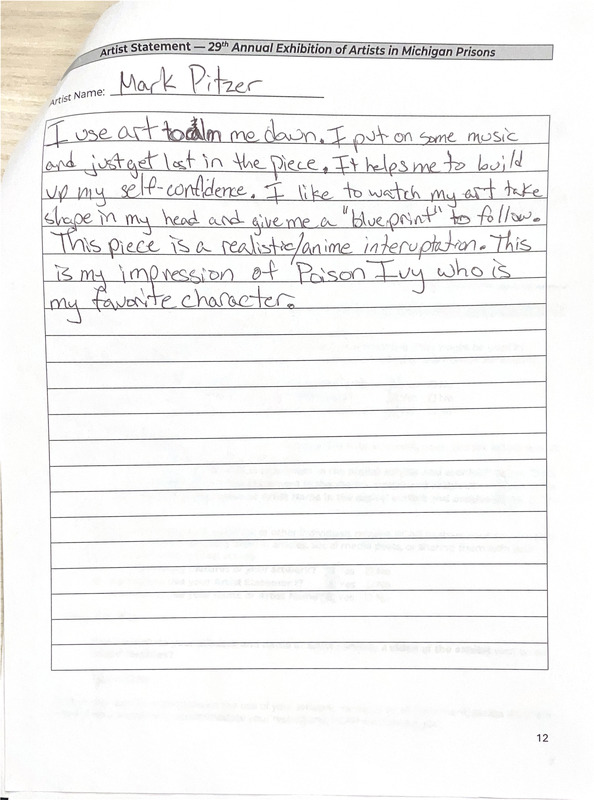 Artist Statement — 29th Annual Exhibition of Artists in Michigan Prisons
Artist Name: Mark Pitzer
I use art to calm me down. I put on some music
and just get lost in the piece. It helps me to build
up my self-confidence. I like to watch my art take
shape in my head and give me a "blueprint" to follow.
This piece is a realistic/anime interuptation. This
is my impression of Poison Ivy who is
my favorite character.
12